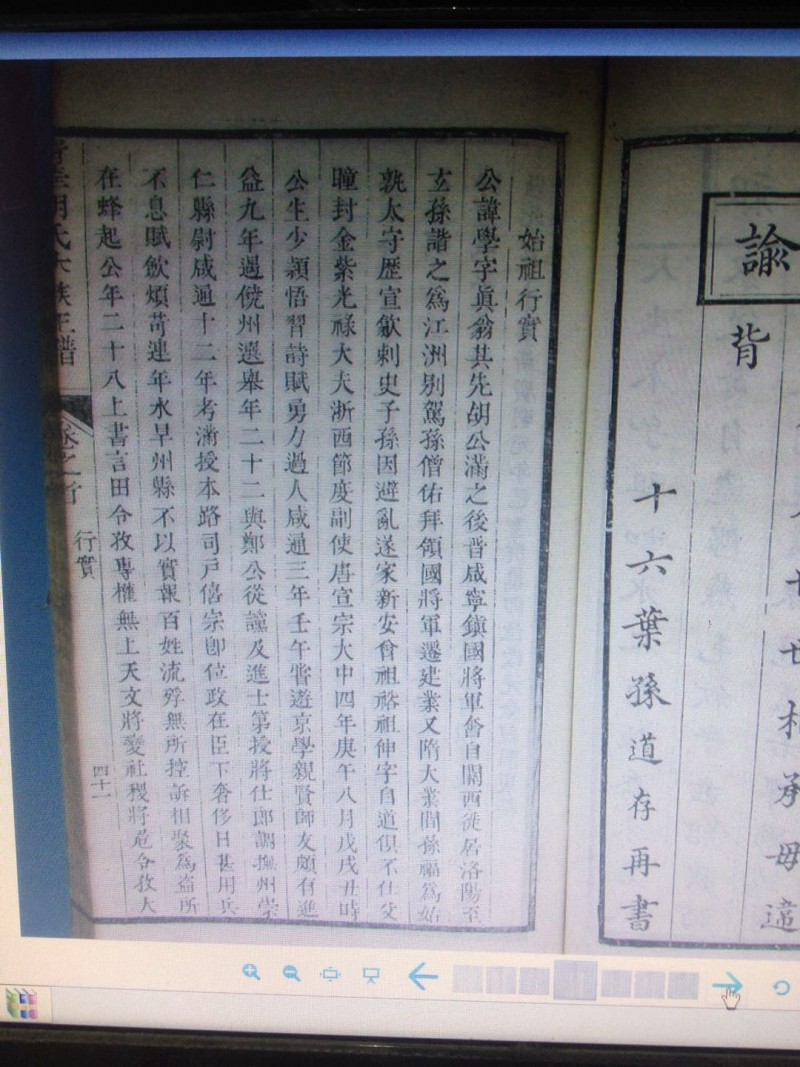 諭
背
世相承毋違
十六葉孫道存再書
始祖行實
公諱學字眞翁其先胡公滿之後晋咸寧鎮國將軍奮自關西徙居洛陽至
玄孫諧之爲江洲别駕孫僧佑拜領國將軍遷建業又隋大業間孫福爲始
太守歷宣歙刺史子孫因避亂遂家新安曾祖裕祖伸字自道俱不仕父
瞳封金紫光祿大夫浙西節度副使唐宣宗大中四年庚午八月戊戌丑時
公生少穎悟習詩賦勇力過人咸通三年壬午嘗遊京學親賢師友頗有進
益九年遇饒州選舉年二十二與鄭公從讜及進士第授將仕郎調撫州崇
仁縣尉咸通十二年考滿授本路司戶僖宗卽位政在臣下奢侈日甚用兵
不息賦歛煩苛連年水旱州縣不以實報百姓流殍無所控訴相聚爲盜所
在蜂起公年二十八上書言田令孜專權無上天文將變社稷將危令孜大
行實
四十一
氏
族正譜
卷之首